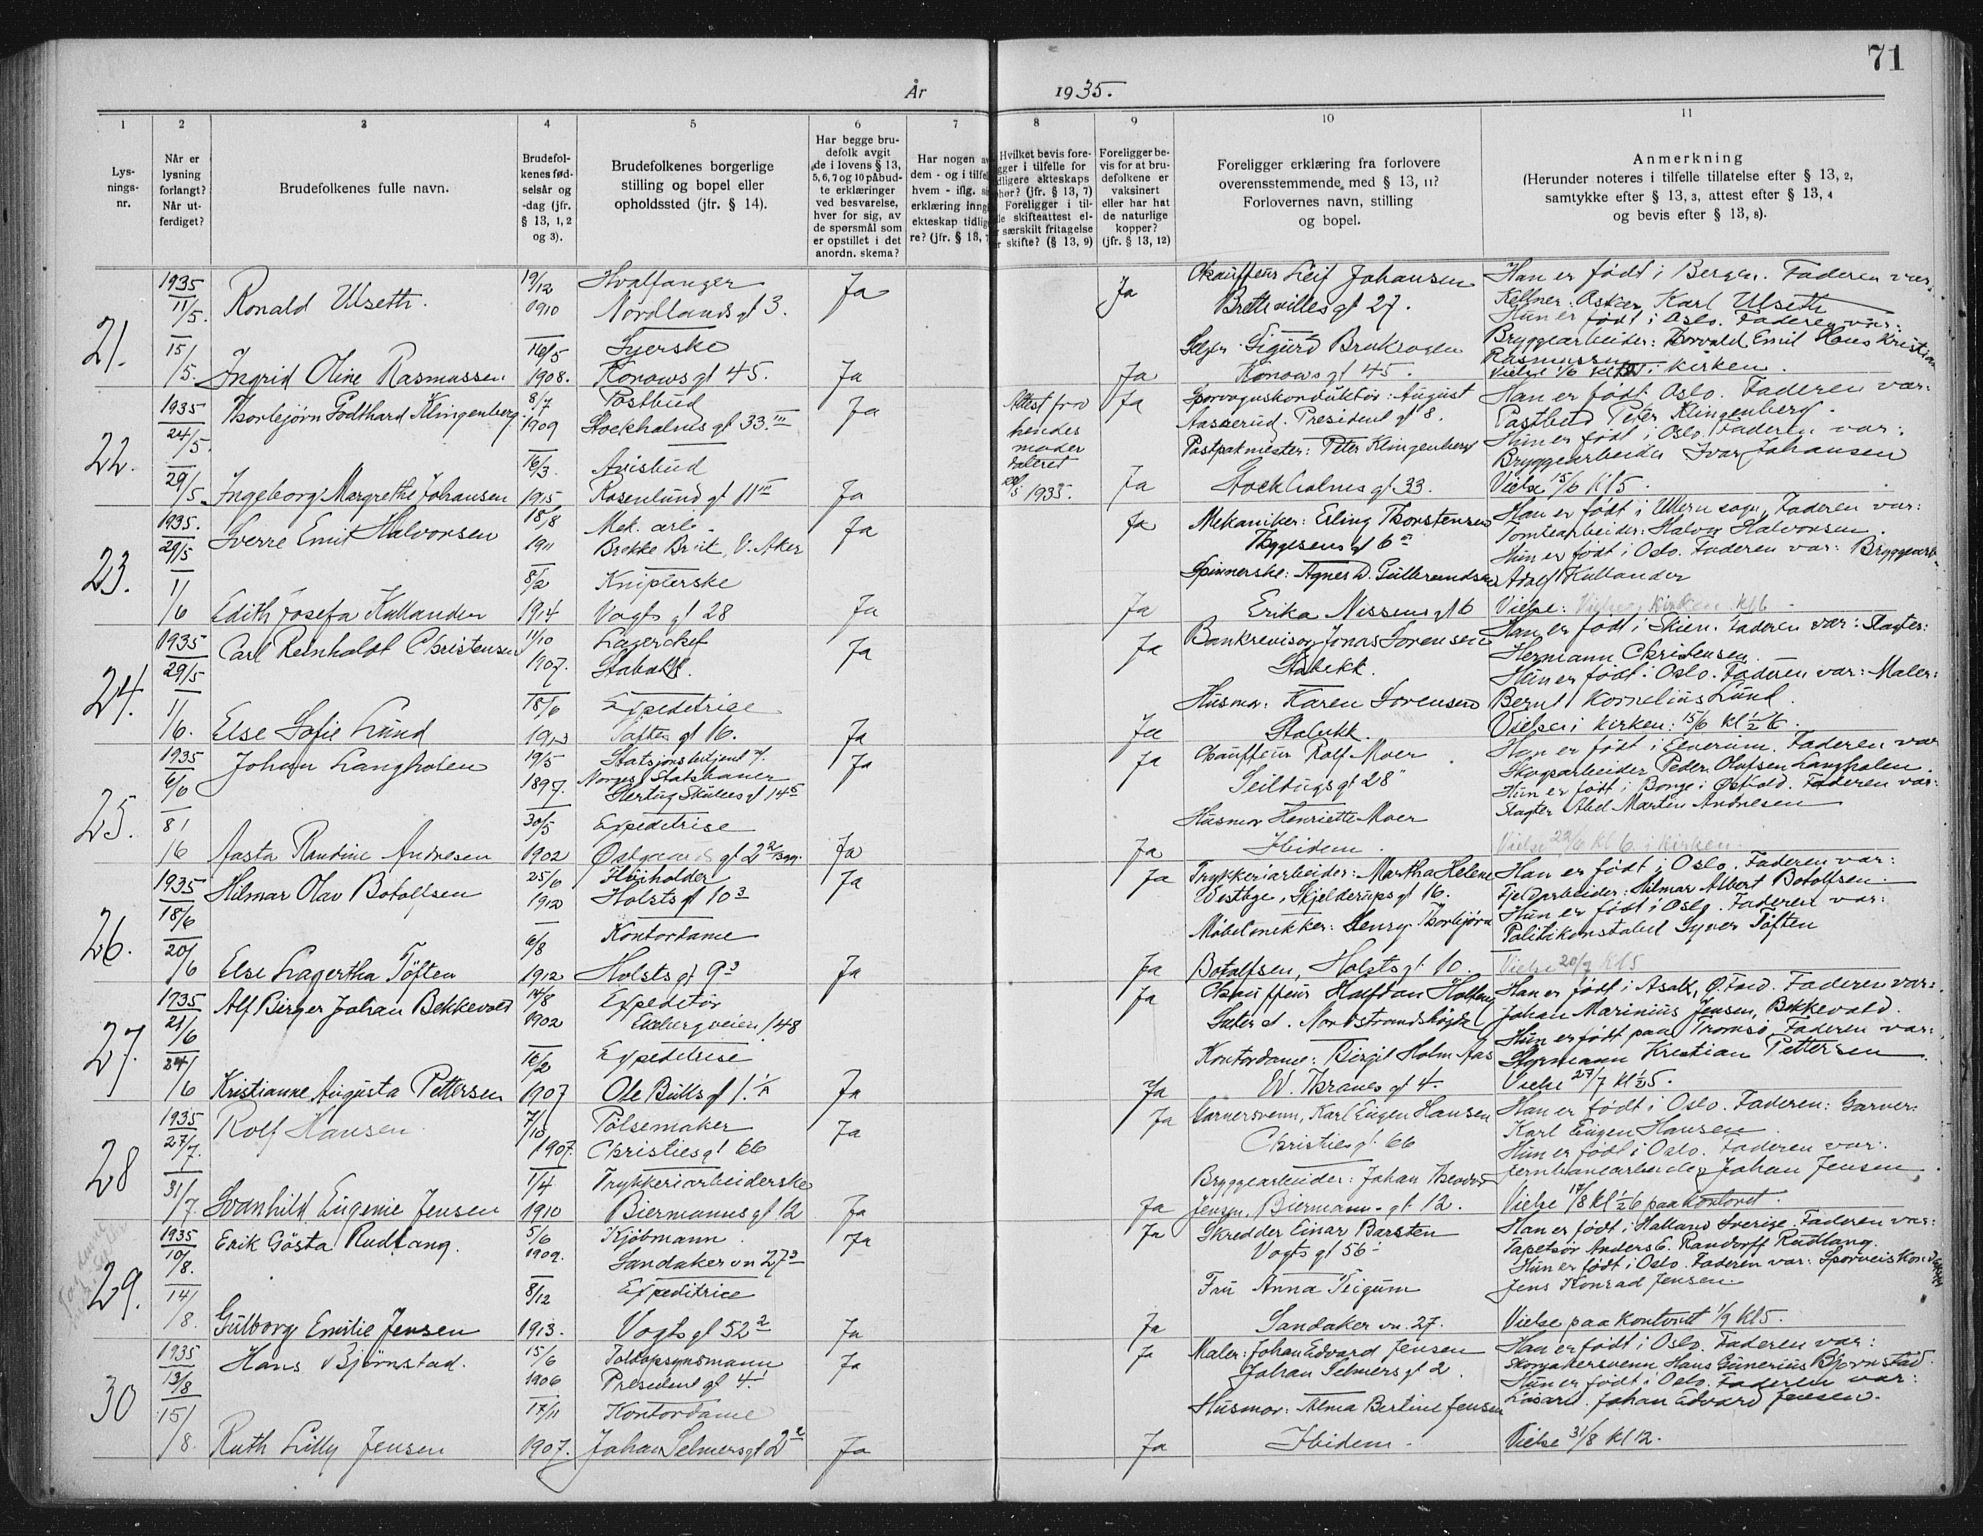 71
År 1935.
1 2 3 4 5 6 7 8 9 10 11
Lys-
nings-
nr.
Når er
lysning
forlangt?
Når ut-
ferdiget?
Brudefolkenes fulle navn.
Brudefol-
kenes fød-
selsår og
-dag (jfr.
§ 13, 1, 2
og 3).
Brudefolkenes borgerlige
stilling og bopel eller
opholdssted (jfr. § 14).
Har begge bru-
defolk avgit
de i lovens § 13,
5, 6, 7 og 10 påbud-
te erklæringer
ved besvarelse,
hver for sig, av
de spørsmål som
er opstillet i det
anordn. skema?
Har nogen av
dem - og i tilfel
hvem - iflg. si
erklæring inng
ekteskap tidlig
re? (jfr. § 13, 7
Hvilket bevis fore-
gger i tilfelle for
dligere ekteskaps
pher? (jfr. § 13, 7)
Foreligger i til-
lle skifteattest el-
særskilt fritagelse
r skifte? (§ 13, 9)
Foreligger be-
vis for at bru-
defolkene er
vaksinert
eller har hat
de naturlige
kopper?
(jfr. § 13, 12)
Foreligger erklæring fra forlovere
overensstemmende med § 13, 11?
Forlovernes navn, stilling
og bopel.
Anmerkning
(Herunder noteres i tilfelle tillatelse efter § 13, 2,
samtykke efter § 13, 3, attest efter § 13, 4
og bevis efter § 13, 8).
21.
1935 11/5. 15/5.
Ronald Ulseth. 19/12 1910 Hvalfanger Nordlands gt 3. Ja Ja
Chauffeur Leif Johansen
gt 27.
Han er født i Bergen. Faderen var:
Kellner: Karl Ulseth
Hun er født i Oslo. Faderen var:
Ingrid Oline Rasmussen 16/5 1908. Syerske Konows gt 45. Ja Ja
Selger Sigurd
Konows gt 45.
Bryggearbeider: Thorvald Emil Hans Kristian
Rasmussen
Vielse 1/6 kirken.
22.
1935 24/5. 29/5
Thorbjørn Godthard Klingenberg. 8/7 1909 Postbud Stockholms gt 33.III Ja Ja
Attest fra
hendes
moder
dateret
1935.
Sporvognskonduktør: August
Aaserud. President gt 8.
Han er født i Oslo. Faderen var:
Postbud Peter Klingenberg.
Hun er født i Oslo. Faderen var:
Ingeborg Margrethe Johansen 16/3. 1915 Avisbud Rosenlund gt 11III Ja Ja
Postpakmester: Peter Klingenberg
Stockholms gt 33.
Bryggearbeider Ivar Johansen
Vielse 15/6 kl 5.
23.
1935. 29/5 1/6
Sverre Emil Halvorsen 18/8 1911 Mek. arb. Brekke Bruk, V. Aker Ja Ja
Mekaniker: Erling Thorstensen
Thygesens gt 6
Han er født i Ullern sogn. Faderen var:
Tomtearbeider: Halvor Halvorsen.
Hun er født i Oslo. Faderen var: Bryggearb.
Edith Josefa Kullander 8/2 1914 Vogts gt 28 Ja Ja
Spinnerske: Agnes D. Gulbrandsen
Erika Nissens gt 6
Adolf Kullander
Vielse: Vielse i kirken kl 6
24.
1935 29/5 1/6.
Carl Reinholdt Christensen 11/10 1907. Lagerchef Stabekk. Ja Ja
Bankrevisor Jonas Sorensen
Stabekk.
Han er født i Skien. Faderen var: Slagter:
Hermann Christensen
Hun er født i Oslo. Faderen var: Maler:
Else Sofie Lund 18/6 1913 Expeditrice Toftes gt 16. Ja Ja
Husmor: Karen Sorensen
Stabekk.
Bernt Kornelius Lund.
Vielse i kirken: 15/6 kl 1/2 6.
25.
1935 6/6 8/6
Johan Langholen 19/5 1897. Statsjonsbetjent v/.
Norges Statsbaner
Hertug Skules gt 14 Ja Ja
Chauffeur Rolf Moer
Seildugs gt 28
Han er født i Elverum. Faderen var
Skogsarbeider Peder Olufsen Langholen.
Hun er født i Borge i Østfold. Faderen var:
Aasta Randine Andresen 30/5 1902 Expeditrise Østgaards gt 2 Ja Ja
Husmor Henriette Moer
Ibidem.
Slagter Abel Martin Andresen
Vielse 22/6 kl 6 i kirken.
26.
1935 18/6 20/6
Hilmar Olav Botolfsen 25/6 1912 Holsts gt 10 Ja Ja
Trykkeriarbeider: Martha Helene
Skjelderups gt 16.
Han er født i Oslo. Faderen var:
Fjeldarbeider: Hilmar Albert Botolfsen.
Hun er født i Oslo. Faderen var:
Else Lagertha Tøften 6/8 1912 Kontordame Holsts gt 9 Ja Ja
Møbelsnekker: Henry Thorbjørn
Botolfsen, Holsts gt 10.
Politikonstabel Syver Tøften
Vielse 20/7 kl 5
27.
1935 21/6 24/6
Alf Birger Johan Bekkevold 14/8 1902 Expeditør Ekebergveien 148 Ja
Chauffeur Halfdan Holteng
Sæter st. Nordstrandshøgda
Han er født i Asak, Ø. Fold. Faderen var:
Johan Marinius Jensen, Bekkevold.
Hun er født paa Tromsø. Faderen var:
Kristianne Augusta Pettersen 16/2 1907 Expeditrise Ole Bulls gt 1. Ja Ja
Kontordame: Birgit Holm Aas
W. Thranes gt 4.
Styrmann Kristian Pettersen.
Vielse 27/7 kl 1/2 5.
28
1935 27/7. 31/7
Rolf Hansen 7/10 1907. Pølsemaker Christies gt 66 Ja Ja
Garversvenn, Karl Eugen Hansen
Christies gt 66
Han er født i Oslo. Faderen: Garver:
Karl Eugen Hansen
Hun er født i Oslo. Faderen var:
Svanhild Eugenie Jensen 1/4 1910 Trykkeriarbeiderske Biermanns gt 12 Ja Ja
Bryggearbeider: Johan Theodor
Jensen, Biermanns gt 12.
Jernbanearbeider Johan Jensen
Vielse 17/8 kl 1/2 6 paa kontoret.
29.
1935 10/8. 14/8.
Erik Gösta Rudlang. 5/6 1909. Kjøbmann Sandaker vn 27 Ja Ja
Skredder Einar Barsten
Vogts gt 56
Han er født i Halland Sverige. Faderen var:
Tapetsør Anders E. Randorff Rudlang.
Hun er født i Oslo. Faderen var: Sporveiskonduktør
Gulborg Emilie Jensen 8/12 1913. Expeditrice Vogts gt 52 Ja Ja
Fru Anna Teigum
Sandaker vn. 27.
Jens Konrad Jensen.
Vielse paa kontoret 1/9 kl 5.
30
1935 13/8 15/8.
Hans Bjørnstad. 15/6 1906 Toldopsynsmann President gt 4. Ja Ja
Maler: Johan Edvard Jensen
Johan Selmers gt 2
Han er født i Oslo. Faderen var:
Skomakersvenn Hans Gunerius Bjørnstad.
Hun er født i Oslo. Faderen var:
Ruth Lilly Jensen 17/11 1907. Kontordame Johan Selmers gt 2 Ja Ja
Husmor: Alma Bertine Jensen
Ibidem.
Johan Edvard Jensen.
Vielse 31/8 kl 12.